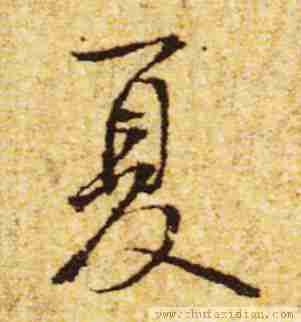 夏
www.shufazidian.com